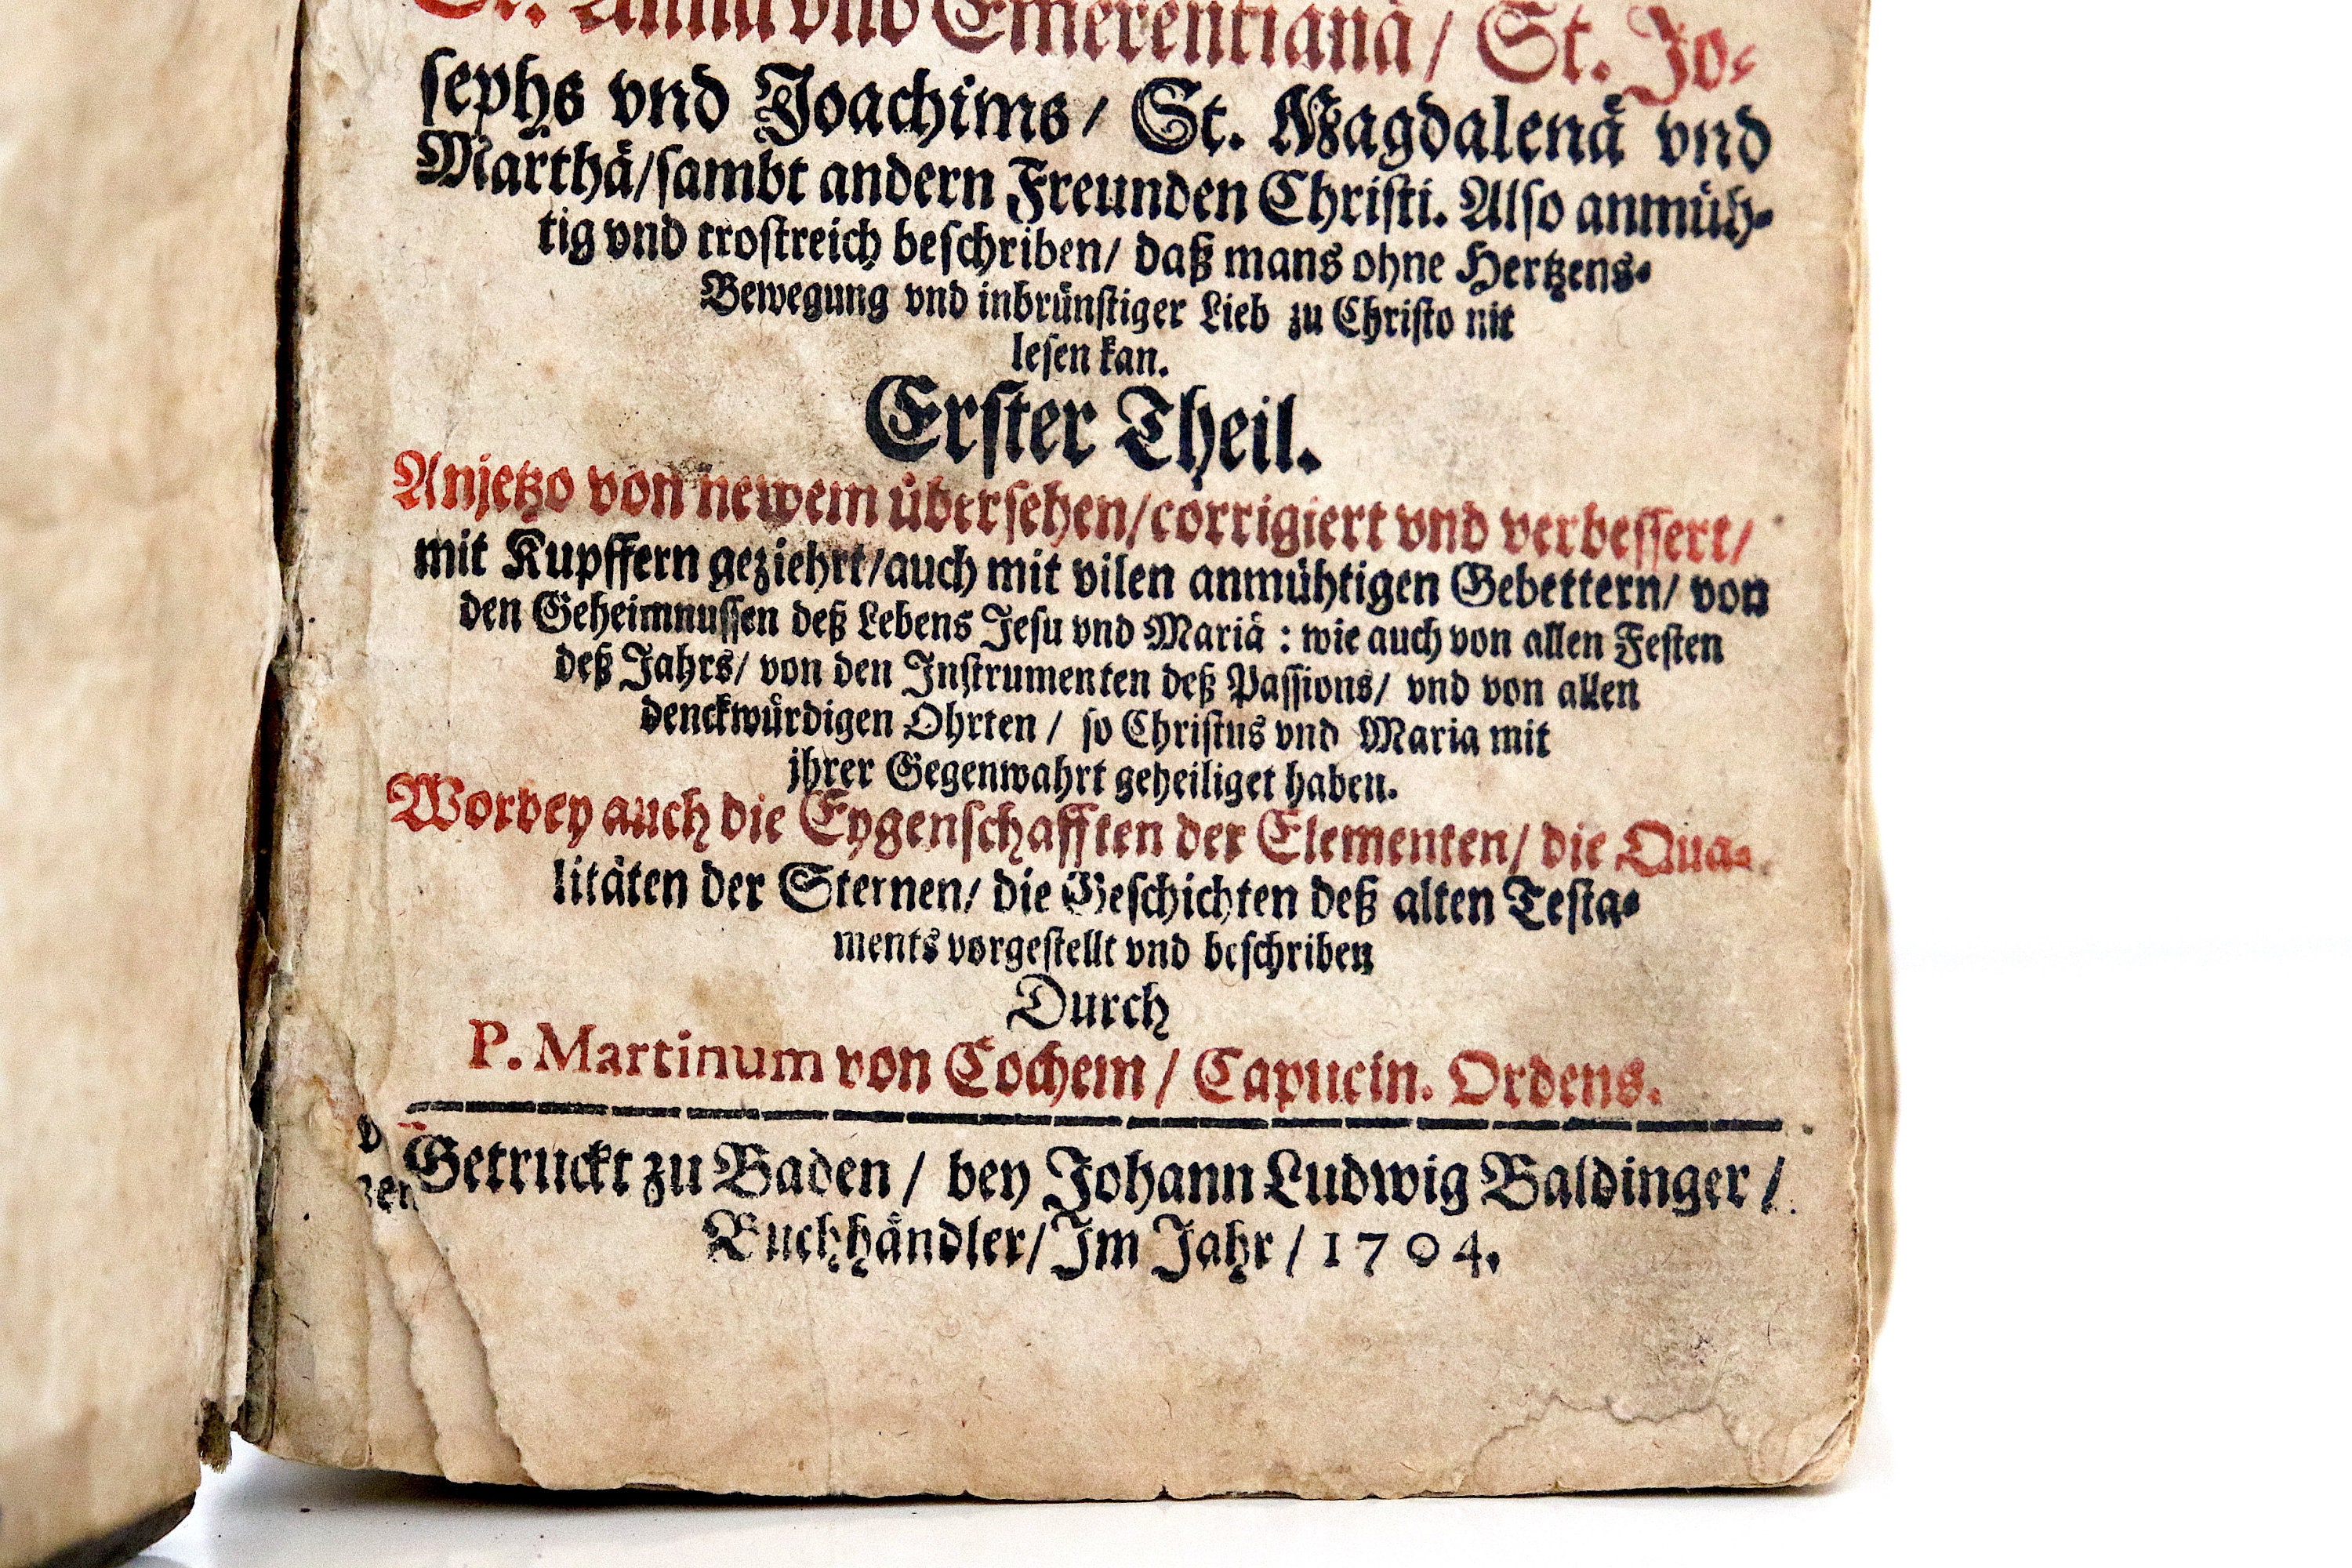 St. Annä vnd Emerentianä / St. Jo⸗
sephs vnd Joachims / St. Magdalenä vnd
Marthä / sambt andern Freunden Christi. Also anmüh⸗
tig vnd trostreich beschriben / daß mans ohne Hertzens⸗
Bewegung vnd inbrünstiger Lieb zu Christo nit
lesen kan.
Erster Theil.
Anjetzo von newem übersehen / corrigiert vnd verbessert /
mit Kupffern geziehrt / auch mit vilen anmühtigen Gebettern / von
den Geheimnussen deß Lebens Jesu vnd Mariä : wie auch von allen Festen
deß Jahrs / von den Instrumenten deß Passions / vnd von allen
denckwürdigen Ohrten / so Christus vnd Maria mit
jhrer Gegenwahrt geheiliget haben.
Worbey auch die Eygenschafften der Elementen / die Qua⸗
litäten der Sternen / die Geschichten deß alten Testa⸗
ments vorgestellt vnd beschriben
Durch
P. Martinum von Cochem / Capucin. Ordens.
Getruckt zu Baden / bey Johann Ludwig Baldinger /
Buchhändler / Im Jahr / 1704.